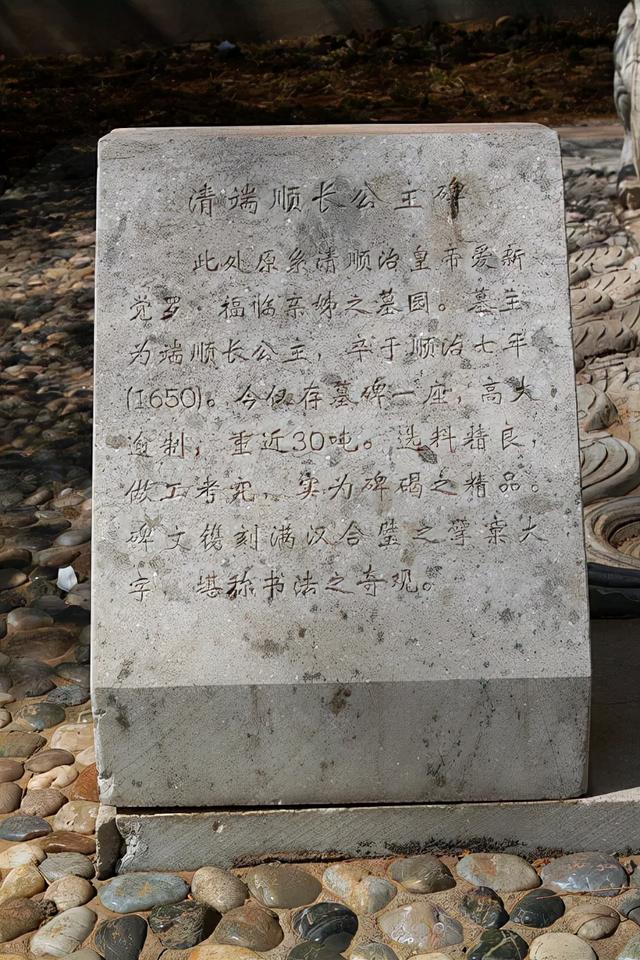 清端顺长公主碑
此处原系清顺治皇帝爱新
觉罗·福临亲姊之墓园。墓主
为端顺长公主，卒于顺治七年
(1650)。今仅存墓碑一座，高大
逾制，重近30吨。选料精良，
做工考究，实为碑碣之精品。
碑文镌刻满汉合璧之擘窠大
字，堪称书法之奇观。